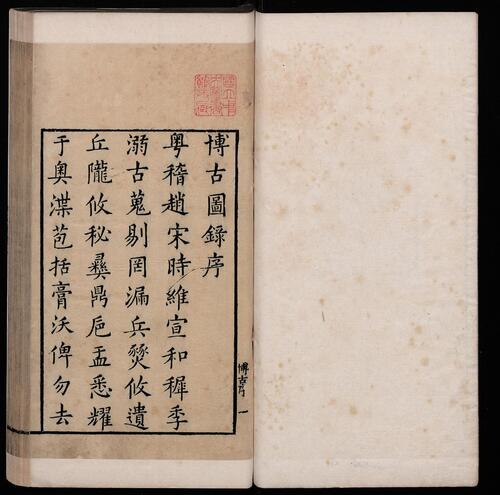 博古圖錄序
粵稽趙宋時維宣和穉季
溺古蒐剔罔漏兵燹攸遺
丘隴攸秘彞鼎巵盂悉耀
于奧渫苞括膏沃俾勿去
博古序 一